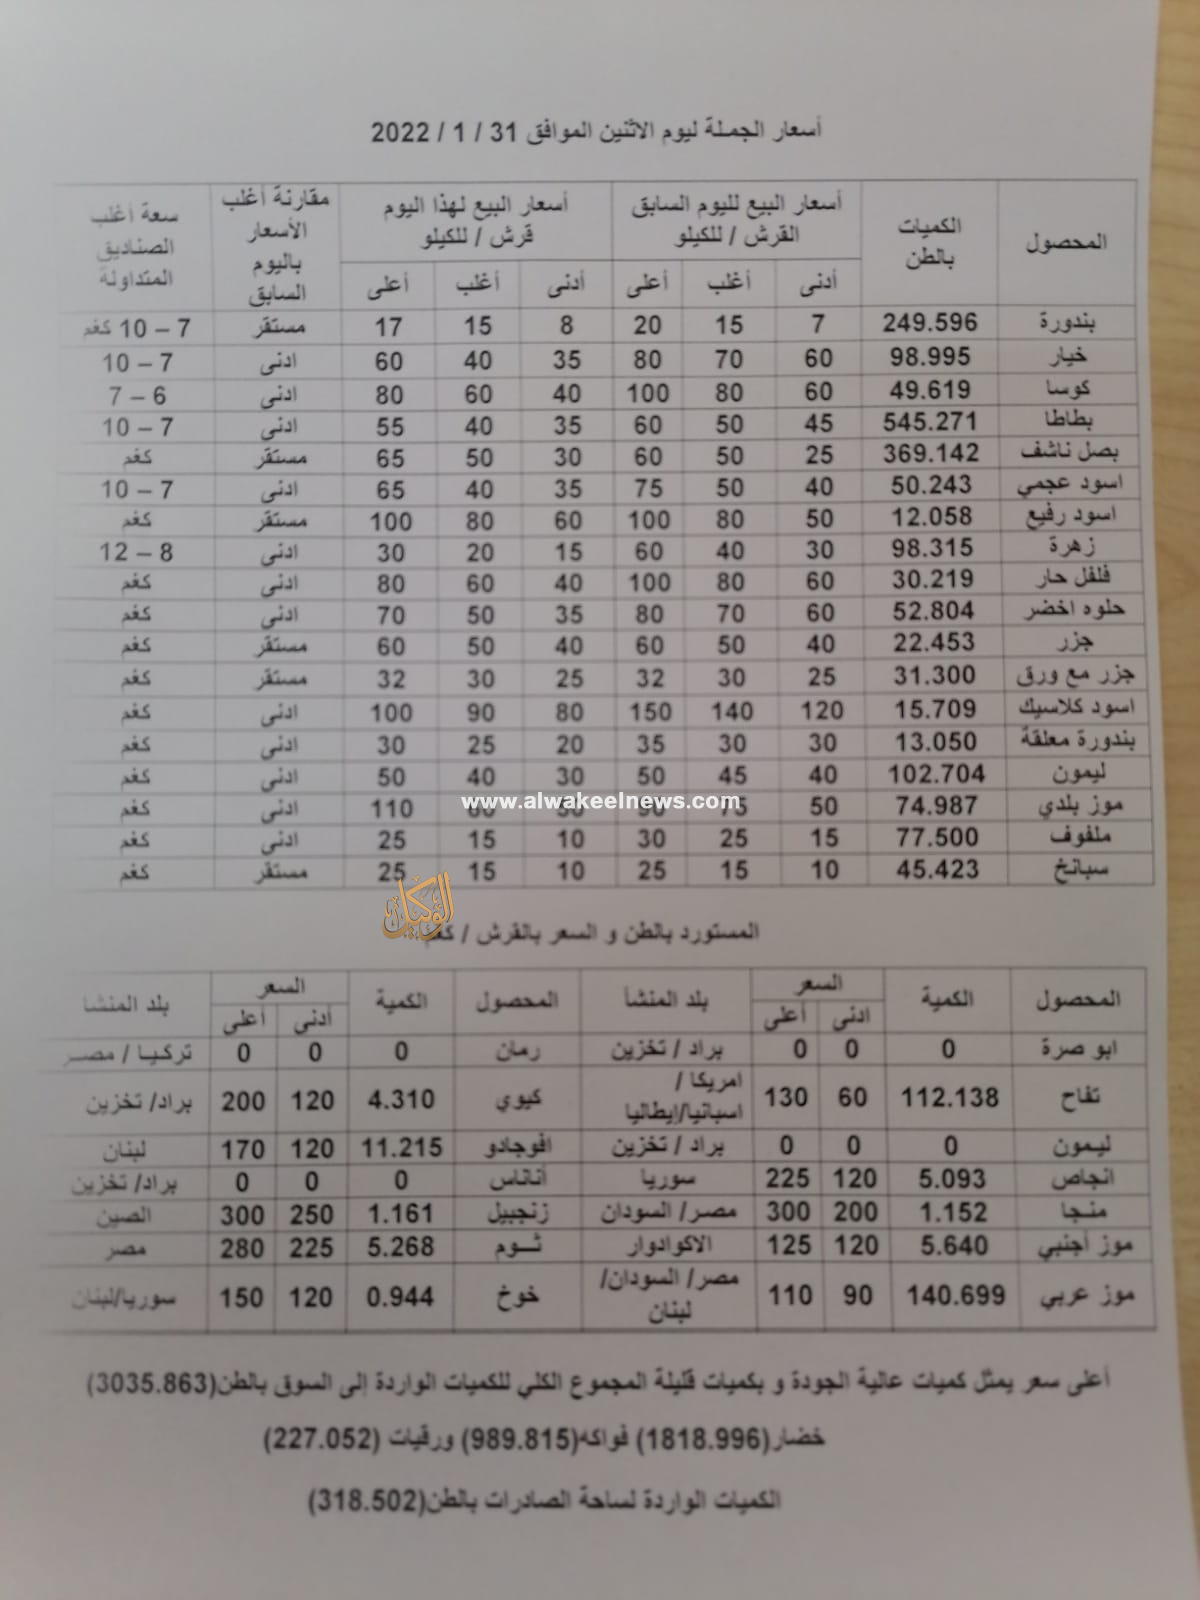 أسعار الجملة ليوم الاثنين الموافق 31 / 1 / 2022
المحصول الكميات بالطن أسعار البيع لليوم السابق القرش / للكيلو أسعار البيع لهذا اليوم قرش / للكيلو مقارنة أغلب الأسعار باليوم السابق سعة أغلب الصناديق المتداولة
أدنى أغلب أعلى أدنى أغلب أعلى
بندورة 249.596 7 15 20 8 15 17 مستقر 7 – 10 كغم
خيار 98.995 60 70 80 35 40 60 ادنى 7 – 10
كوسا 49.619 60 80 100 40 60 80 ادنى 6 – 7
بطاطا 545.271 45 50 60 35 40 55 ادنى 7 – 10
بصل ناشف 369.142 25 50 60 30 50 65 مستقر كغم
اسود عجمي 50.243 40 50 75 35 40 65 ادنى 7 – 10
اسود رفيع 12.058 50 80 100 60 80 100 مستقر كغم
زهرة 98.315 30 40 60 15 20 30 ادنى 8 – 12
فلفل حار 30.219 60 80 100 40 60 80 ادنى كغم
حلوه اخضر 52.804 60 70 80 35 50 70 ادنى كغم
جزر 22.453 40 50 60 40 50 60 مستقر كغم
جزر مع ورق 31.300 25 30 32 25 30 32 مستقر كغم
اسود كلاسيك 15.709 120 140 150 80 90 100 ادنى كغم
بندورة معلقة 13.050 30 30 35 20 25 30 ادنى كغم
ليمون 102.704 40 45 50 30 40 50 ادنى كغم
موز بلدي 74.987 50 75 90 50 60 110 ادنى كغم
www.alwakeelnews.com
ملفوف 77.500 15 25 30 10 15 25 ادنى كغم
سبانخ 45.423 10 15 25 10 15 25 مستقر كغم
الوكيل
المستورد بالطن و السعر بالقرش / كغم
المحصول الكمية السعر بلد المنشأ المحصول الكمية السعر بلد المنشا
ادنى أعلى أدنى أعلى
ابو صرة 0 0 0 براد / تخزين رمان 0 0 0 تركيا / مصر
تفاح 112.138 60 130 امريكا / اسبانيا/إيطاليا كيوي 4.310 120 200 براد/ تخزين
ليمون 0 0 0 براد / تخزين افوجادو 11.215 120 170 لبنان
انجاص 5.093 120 225 سوريا أناناس 0 0 0 براد/ تخزين
منجا 1.152 200 300 مصر/ السودان زنجبيل 1.161 250 300 الصين
موز أجنبي 5.640 120 125 الاكوادوار ثوم 5.268 225 280 مصر
موز عربي 140.699 90 110 مصر/ السودان/ لبنان خوخ 0.944 120 150 سوريا/لبنان
أعلى سعر يمثل كميات عالية الجودة و بكميات قليلة المجموع الكلي للكميات الواردة إلى السوق بالطن(3035.863)
خضار(1818.996) فواكه(989.815) ورقيات (227.052)
الكميات الواردة لساحة الصادرات بالطن(318.502)